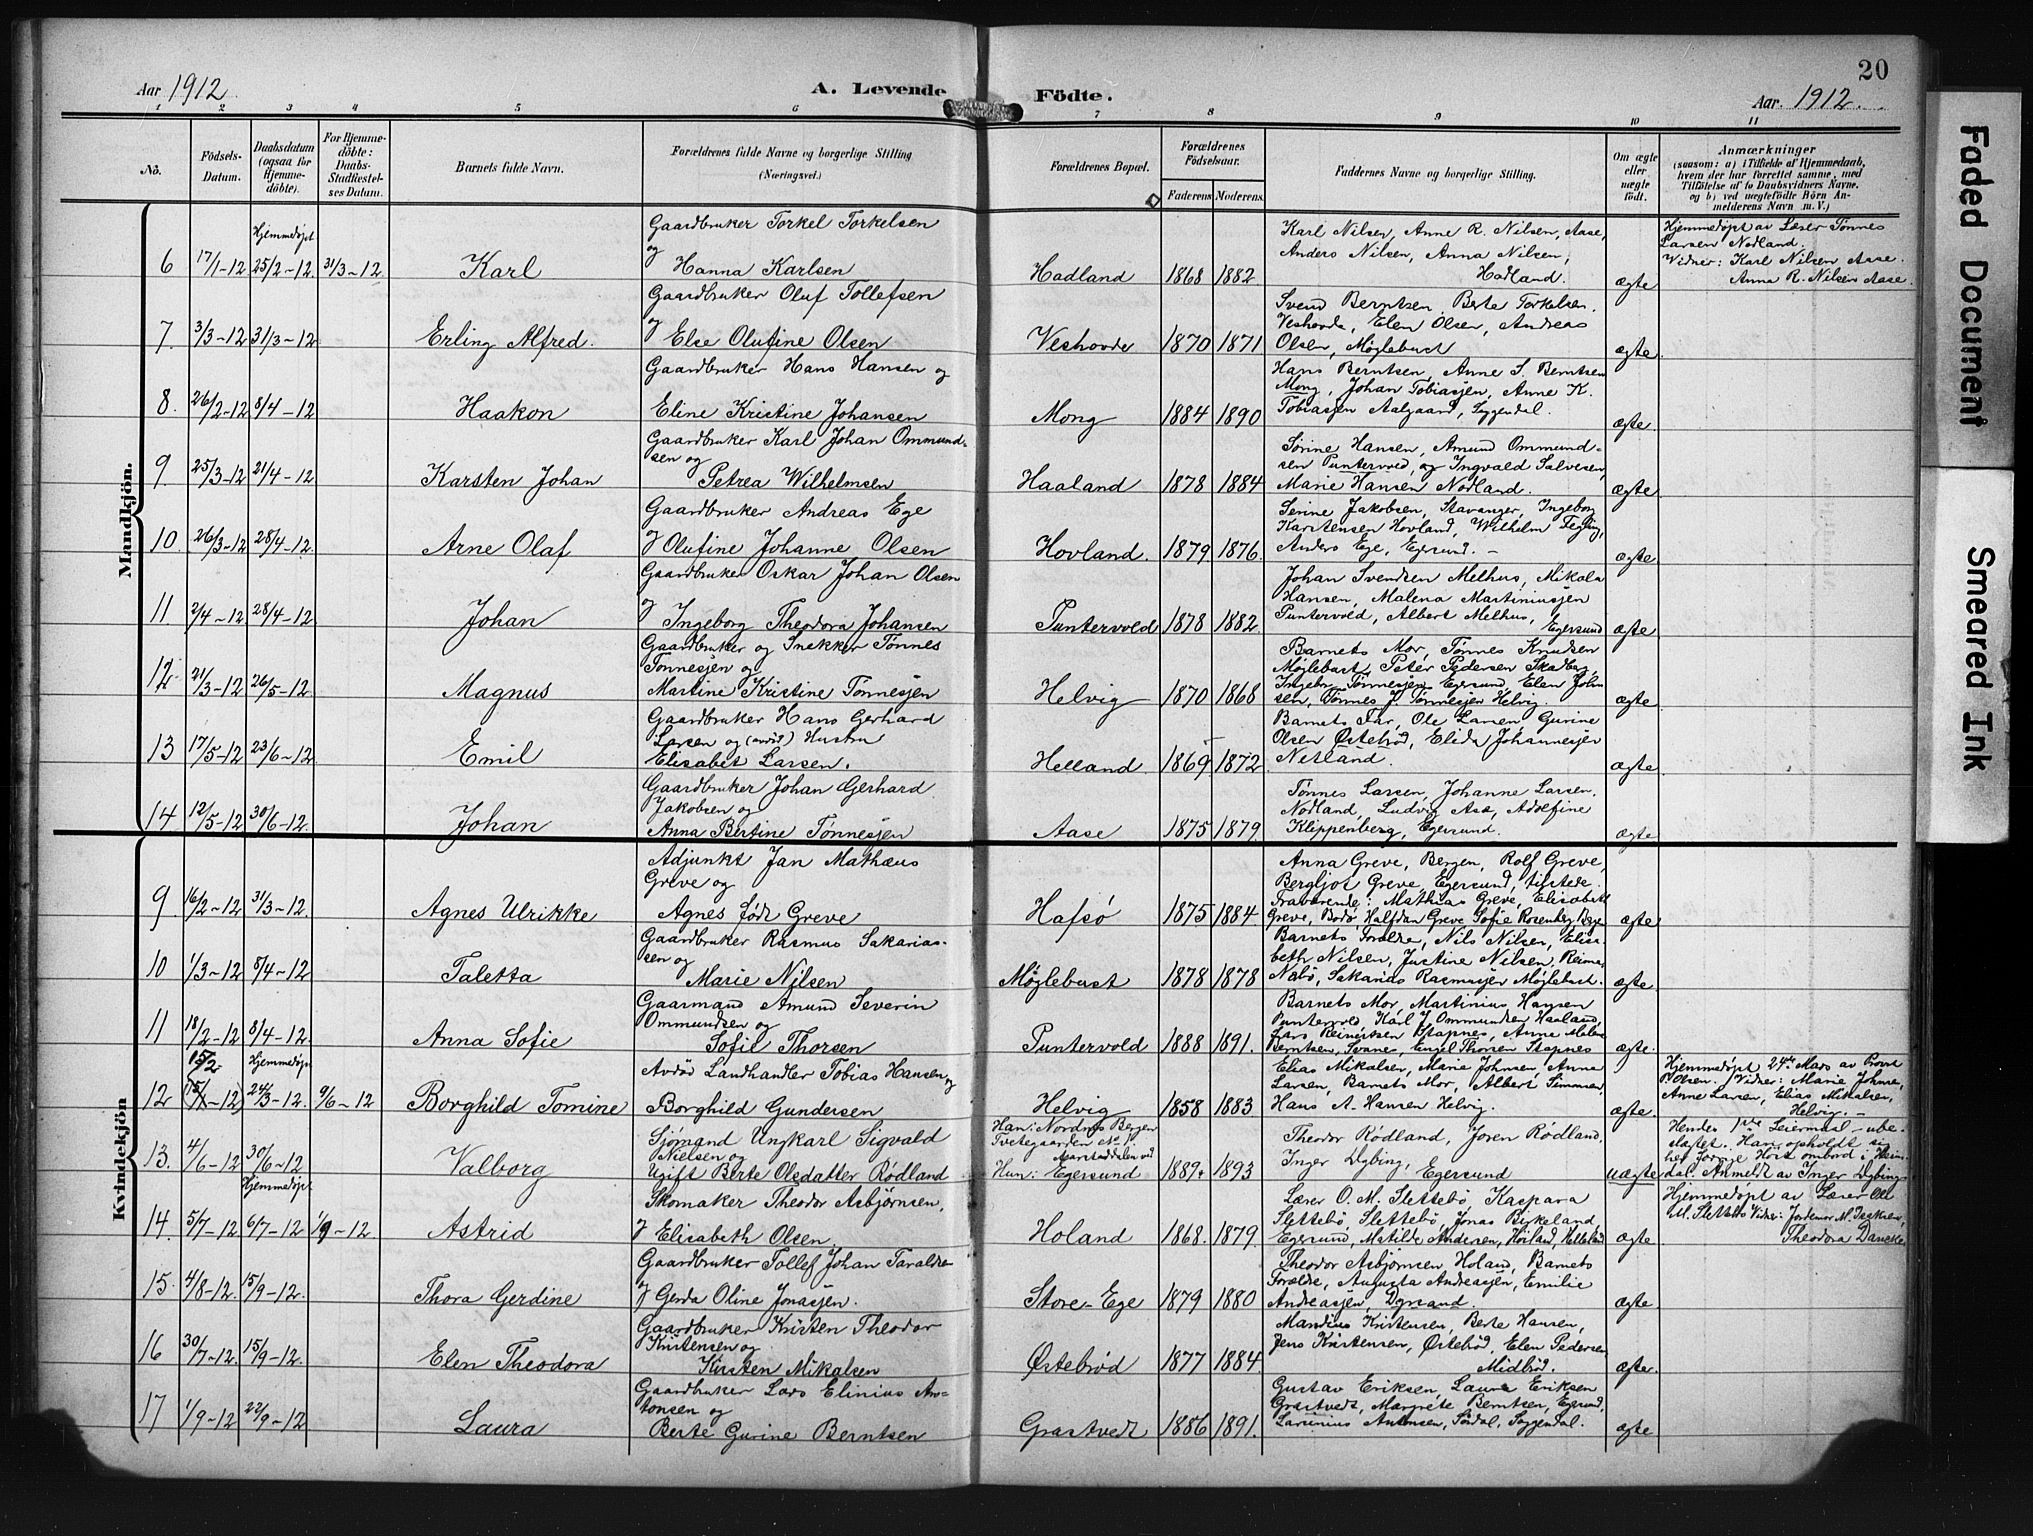 20
Aar 1912
A. Levende
Födte.
Aar. 1912.
1 2 3 4 5 6 7 8 9 10 11
No.
Födsels-Datum.
Daabsdatum (ogsaa for Hjemme-döbte).
For Hjemme-döbte: Daabs-Stadfæstelses Datum.
Barnets fulde Navn.
Forældrenes fulde Navne og borgerlige Stilling (Næringsvei.)
Forældrenes Bopæl.
Forældrenes Födselsaar.
Faderens Moderens.
Faddernes Navne og borgerlige Stilling.
Om ægte eller uægte födt.
Anmærkninger
(saasom: a) i Tilfælde af Hjemmedaab, hvem der har forrettet samme, med Tilföielse af to Daabsvidners Navne, og b) ved uægtefödte Börn Anmelderens Navn m. V.)
Mandkjön.
6 17/1-12 Hjemmedøpt 25/2-12. 31/3-12 Karl
Gaardbruker Torkel Torkelsen
og
Hanna Karlsen
Hadland 1868 1882
Karl Nilsen, Anne R. Nilsen, Aase,
Anders Nilsen, Anna Nilsen,
Hadland.
ægte
Hjemmedøpt av Lærer Tønnes
Larsen Nodland.
Vidner: Karl Nilsen Aase.
Anna R. Nilsen Aase.
7. 3/3-12 31/3-12 Erling Alfred.
Gaardbruker Oluf Tollefsen
og Else Olufine Olsen
Veshovde 1870 1871
Svend Berntsen, Berte Torkelsen.
Veshovde, Elen Olsen, Andreas
Olsen, Møglebust
ægte.
8. 26/2-12 8/4-12 Haakon
Gaardbruker Hans Hansen og
Eline Kristine Johansen
Mong 1884 1890
Hans Berntsen, Anne S. Berntsen
Mong, Johan Tobiasjen, Anne K.
Tobiasjen Aalgaard, Soggendal.
ægte.
9 25/3-12 21/4-12 Karsten Johan
Gaardbruker Karl Johan Ommund-
sen og
Petrea Wilhelmsen
Haaland 1878 1884
Sørine Hansen, Amund Ommund-
sen Puntervod, og Ingvald Salvesen,
Marie Hansen Nodland.
ægte
10. 26/3-12 28/4-12. Arne Olaf
Gaardbruker Andreas Ege
& Olufine Johanne Olsen
Hovland. 1879. 1876.
Serine Jakobsen, Stavanger, Ingeborg
Karstensen Hovland, Wilhelm
Anders Ege, Egersund. -
ægte
11. 2/4-12 28/4-12 Johan
Gaardbruker Oskar Johan Olsen
& Ingeborg Theodora Johansen
Puntervold 1878 1882.
Johan Svendsen Melhus, Mikala
Hansen, Malena Martiniusjen
Puntervold, Albert Melhus,
Egersund
ægte
12. 21/3-12 26/5-12. Magnus
Gaardbruker og Snekker Tønnes
Tønnesjen og
Martine Kristine Tønnesjen
Helvig 1870 1868
Barnets Mor, Tønnes Knudsen
Møglebust, Peter Pedersen Skadberg,
Ingebr. Tønnesjen Egersund, Elen John
sen, Tønnes J. Tønnesjen Helvig.
ægte
13 17/5-12 23/6-12 Emil
Gaardbruker Hans Gerhard
Larsen og Hustru
Elisabet Larsen.
Helland. 1869 1872
Barnets Far, Ole Larsen, Gurine
Olsen Østebrød, Elida Johannesjen
Netland.
ægte.
14 12/5-12 30/6-12. Johan
Gaardbruker Johan Gerhard
Jakobsen og
Anna Bertine Tønnesjen
Aase 1875 1879.
Tønnes Larsen, Johanne Larsen,
Nodland, Ludvig Aase, Adolfine
Klippenberg, Egersund.
ægte
Kvindekjön
9. 16/2-12 31/3-12. Agnes Ulrikke
Adjunkt Jan Mathæus
Greve og
Agnes født Greve
Hafsø 1875 1884.
Anna Greve, Bergen, Rolf Greve,
Bergljot Greve, Egersund, tilstede.
Fraværende: Mathias Greve, Elisabeth
Greve, Bodø, Halfdan Greve, Sofie Rosenberg
ægte
10 1/3-12 8/4-12 Taletta
Gaardbruker Rasmus Sakarias-
sen og
Marie Nilsen
Møglebust 1878 1878
Barnets Forældre, Nils Nilsen, Elisa-
beth Nilsen, Justine Nilsen,
Nalbø, Sakarias Rasmusjen Møglebust.
ægte.
11 18/2-12 8/4-12. Anna Sofie
Gaarmand Amund Severin
Ommundsen og
Sofie Thorsen
Puntervold 1888 1891.
Barnets Mor, Martinius Hansen
Puntervold, Karl J. Ommundsen Haaland,
Lars Reinertsen Stapnes, Anne Malene
Berntsen, Svanes, Engel Thorsen Stapnes
ægte.
12 15/2 (5/1-12) Hjemmedøpt 24/3-12. 9/6-12 Borghild Tomine
Avdød Landhandler Tobias Hansen og
Borghild Gundersen
Helvig 1858 1883
Elias Mikalsen, Marie Johnsen, Anna
Larsen, Barnets Mor, Albert Simonsen,
Hans A. Hansen Helvig.
ægte.
Hjemmedøpt 24de Mars av Provst
Olsen. Vidner: Marie Johnsen,
Anne Larsen, Elias Mikalsen,
Helvig. -
13. 4/6-12 30/6-12 Valborg
Sjømand Ungkarl Sigvald
Nielsen og
Ugift Berte Olsdatter Rødland
Han: Nordnes Bergen
Tvetegaarden No 1.
Hun: Egersund 1889. 1893
Theodor Rødland, Joren Rødland,
Inger Dybing, Egersund
uægte
Hendes 1ste Leiermaal - ube-
slægtet. Han opholdt sig
Høst ombord i Heim-
dal. Anmeldt av Inger Dybing
14. 5/7-12 Hjemmedøpt 6/7-12 1/9-12 Astrid
Skomaker Theodor Asbjørnsen,
& Elisabeth Olsen.
Holand 1868. 1879.
Lærer O. M. Slettebø, Kaspara
Slettebø, Slettebø, Jonas Birkeland,
Egersund, Matilde Andersen, Helleland
ægte
Hjemmedøpt av Lærer Ole
M. Slettebø Vidner: Jordmor M. Isaksen,
Theodora Danske
15. 4/8-12. 15/9-12. Thora Gerdine
Gaardbruker Tollef Johan Taraldsen
og
& Gerda Oline Jonasjen.
Store-Ege 1879 1880
Theodor Asbjørnsen Holand, Barnets
Forældre, Augusta Andreasjen, Emilie
Andreasjen, Dyrsand.
ægte
16 30/7-12. 15/9-12. Elen Theodora
Gaardbruker Kristen Theodor
Kristensen og
Kirsten Mikalsen
Østebrød 1877 1884.
Mandius Kristensen, Berte Hansen,
Jens Kristensen, Østebrød, Elen Pedersen
Midbrød.
ægte.
17 1/9-12 22/9-12 Laura
Gaardbruker Lars Elinius An-
tonsen og
Berte Gurine Berntsen
Grastvedt 1886 1891.
Gustav Eriksen, Laura Eriksen
Grastvedt, Margrete Berntsen, Egersund,
Larsinius Antonsen, Sørdal, Soggendal.
ægte
Faded Document
Smeared Ink